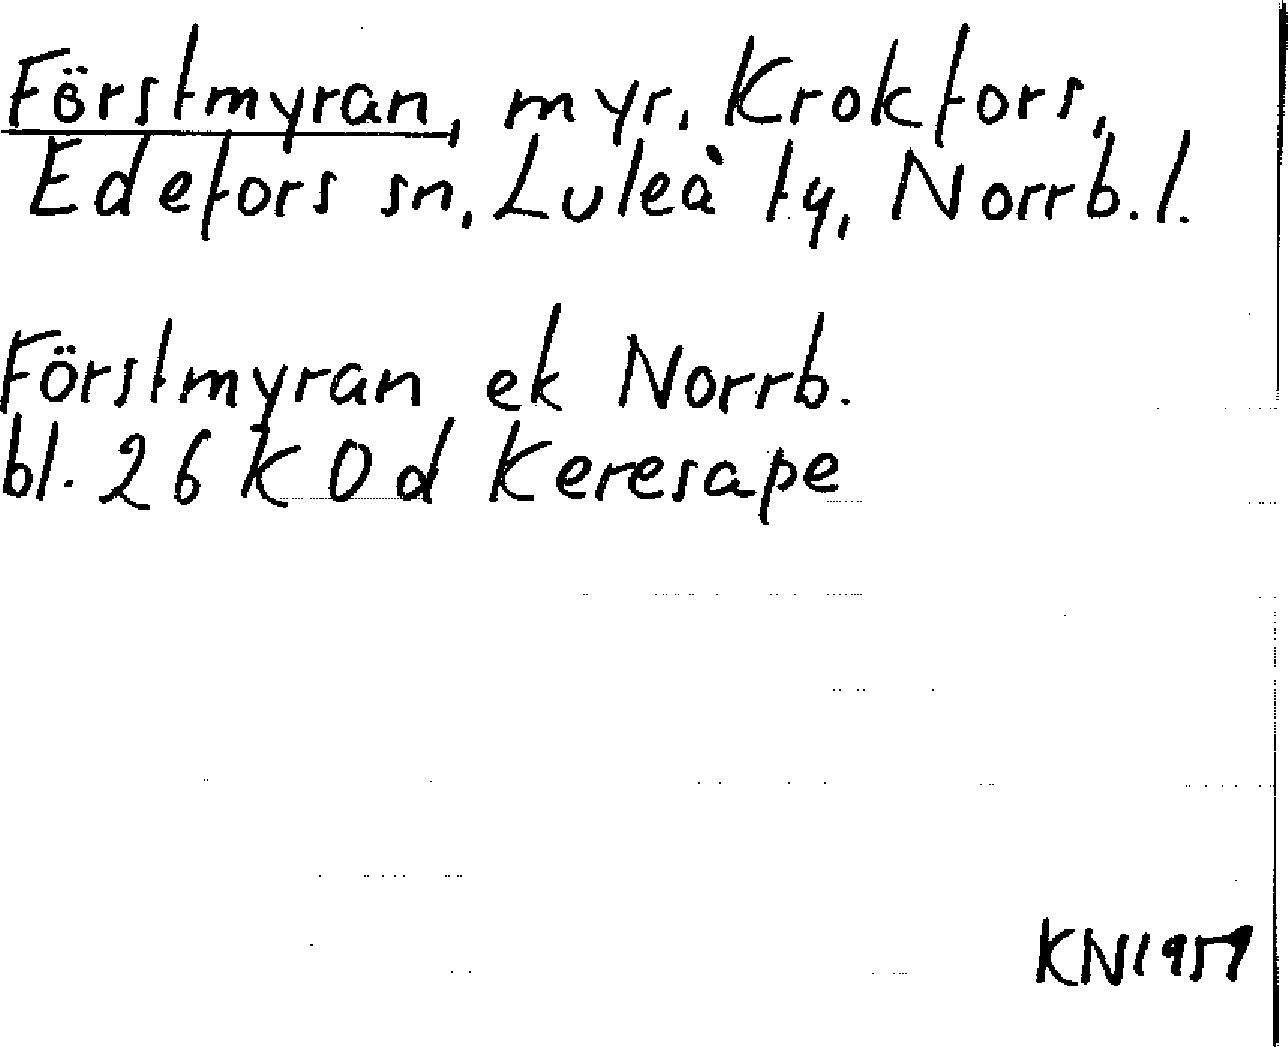 Förstmyran, myr, Krokfors,
Edefors sn, Luleå ty, Norrb. l.
Förstmyran ek Norrb.
bl. 26 K 0 d Keresape
KN 1957